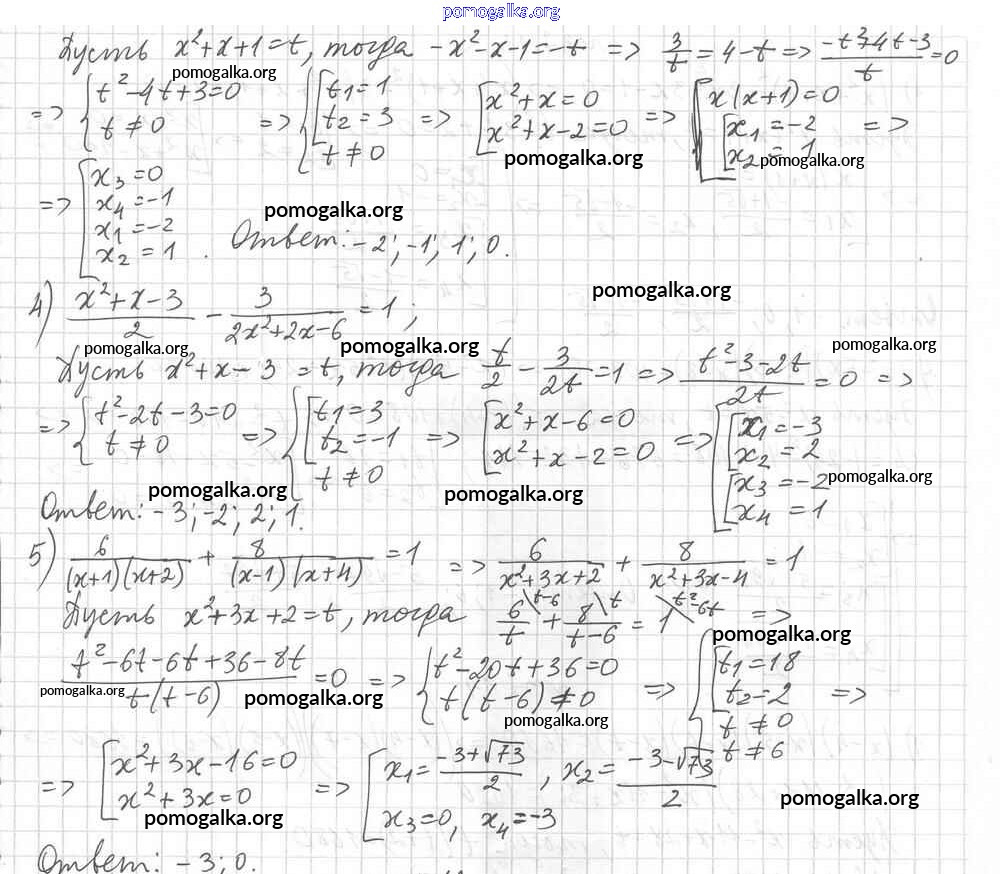 pomogalka.org
Пусть x²+x+1=t, тогда -x²-x-1=-t => 3/t = 4-t => (-t²+4t-3)/t = 0
pomogalka.org
=> { t²-4t+3=0; t≠0 => { [ t₁=1; t₂=3; t≠0 => [ x²+x=0; x²+x-2=0 => [ x(x+1)=0; [ x₁=-2; x₂=1 =>
pomogalka.org pomogalka.org
=> [ x₃=0; x₄=-1; x₁=-2; x₂=1. Ответ: -2; -1; 1; 0.
pomogalka.org
pomogalka.org
4) (x²+x-3)/2 - 3/(2x²+2x-6) = 1;
pomogalka.org pomogalka.org pomogalka.org
Пусть x²+x-3=t, тогда t/2 - 3/(2t) = 1 => (t²-3-2t)/(2t) = 0 =>
=> { t²-2t-3=0; t≠0 => { [ t₁=3; t₂=-1; t≠0 => [ x²+x-6=0; x²+x-2=0 => [ [ x₁=-3; x₂=2; [ x₃=-2; x₄=1
pomogalka.org pomogalka.org pomogalka.org
Ответ: -3; -2; 2; 1.
5) 6/((x+1)(x+2)) + 8/((x-1)(x+4)) = 1 => 6/(x²+3x+2) + 8/(x²+3x-4) = 1
Пусть x²+3x+2=t, тогда 6\t-6/t + 8\t/(t-6) = 1\t²-6t =>
pomogalka.org
(t²-6t-6t+36-8t)/(t(t-6)) = 0 => { t²-20t+36=0; t(t-6)≠0 => { [ t₁=18; t₂=2; t≠0; t≠6 =>
pomogalka.org pomogalka.org pomogalka.org
=> [ x²+3x-16=0; x²+3x=0 => [ x₁=(-3+√73)/2, x₂=(-3-√73)/2; x₃=0, x₄=-3
pomogalka.org pomogalka.org
Ответ: -3; 0.